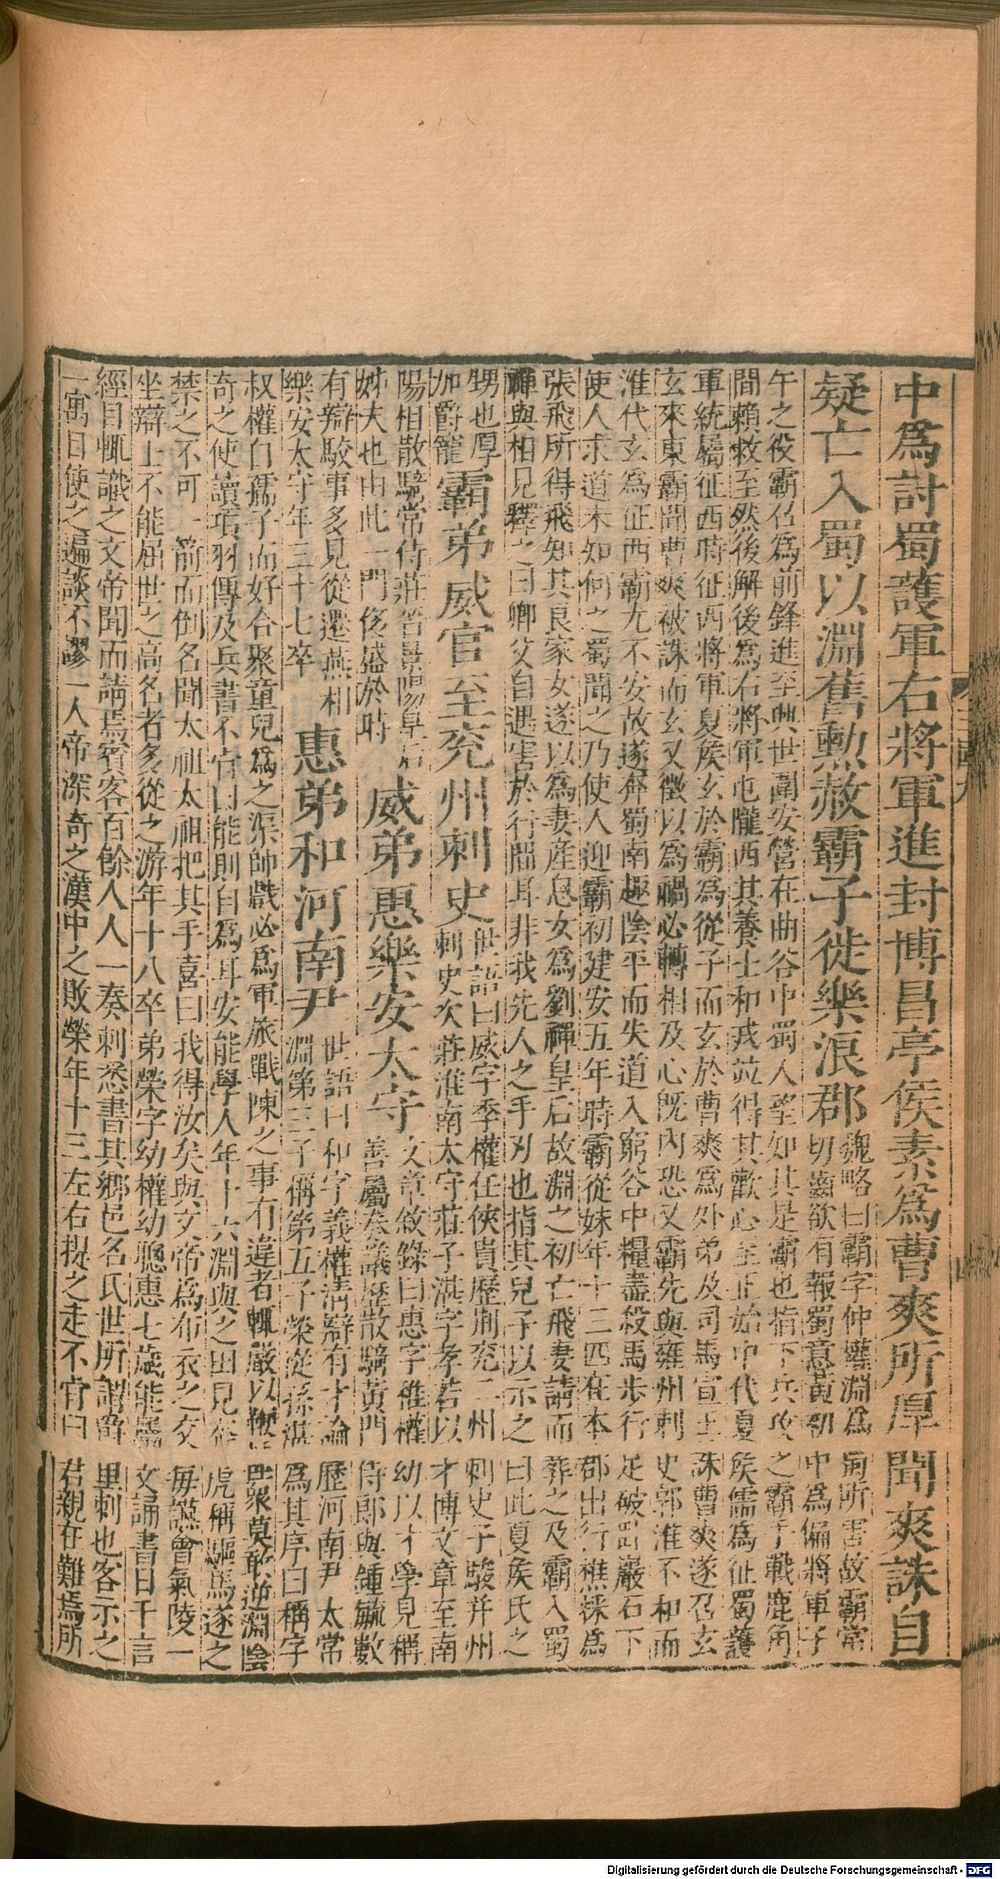 中爲討蜀護軍右將軍進封博昌亭侯素爲曹爽所厚聞爽誅自
疑亡入蜀以淵舊勲赦霸子徙樂浪郡
魏略曰霸字仲權淵爲蜀所害故霸常
切齒欲有報蜀意黃初中爲偏將軍子
午之役霸召爲前鋒進至興世圍安營在曲谷中蜀人望知其是霸也指下兵攻之霸手戰鹿角
間賴救至然後解後爲右將軍屯隴西其養士和戎並得其歡心至正始中代夏侯儒爲征蜀護
軍統屬征西時征西將軍夏侯玄於霸爲從子而玄於曹爽爲外弟及司馬宣王誅曹爽遂召玄
玄來東霸聞曹爽被誅而玄又徵以爲禍必轉相及心旣內恐又霸先與雍州刺史郭淮不和而
淮代玄爲征西霸尤不安故遂奔蜀南趣陰平而失道入窮谷中糧盡殺馬步行足破臥巖石下
使人求道未知何之蜀聞之乃使人迎霸初建安五年時霸從妹年十三四在本郡出行樵採爲
張飛所得飛知其良家女遂以爲妻產息女爲劉禪皇后故淵之初亡飛妻請而葬之及霸入蜀
禪與相見釋之曰卿父自遇害於行間耳非我先人之手刃也指其兒子以示之曰此夏侯氏之
甥也厚
加爵寵
霸弟威官至兖州刺史
世語曰威字季權任俠貴歷荆兖二州刺史子駿并州
刺史次莊淮南太守莊子湛字孝若以才博文章至南
陽相散騎常侍莊晉景陽皇后
姊夫也由此一門侈盛於時
威弟惠樂安太守
文章敘錄曰惠字稚權幼以才學見稱
善屬奏議歷散騎黃門侍郎與鍾毓數
有辯駮事多見從遷燕相
樂安太守年三十七卒
惠弟和河南尹
世語曰和字義權淸辯有才論歷河南尹太常
淵第三子稱第五子榮從孫湛爲其序曰稱字
叔權自孺子而好合聚童兒爲之渠帥戲必爲軍旅戰陳之事有違者輒嚴以鞭捶衆莫敢逆淵陰
奇之使讀項羽傳及兵書不肯曰能則自爲耳安能學人年十六淵與之田見奔虎稱驅馬逐之
禁之不可一箭而倒名聞太祖太祖把其手喜曰我得汝矣與文帝爲布衣之交每讌會氣陵一
坐辯士不能屈世之高名者多從之游年十八卒弟榮字幼權幼聰惠七歲能屬文誦書日千言
經目輒識之文帝聞而請焉賓客百餘人人一奏刺悉書其鄉邑名氏世所謂爵里刺也客示之
一寓目使之遍談不謬一人帝深奇之漢中之敗榮年十三左右提之走不肯曰君親在難焉所
Digitalisierung gefördert durch die Deutsche Forschungsgemeinschaft - DFG